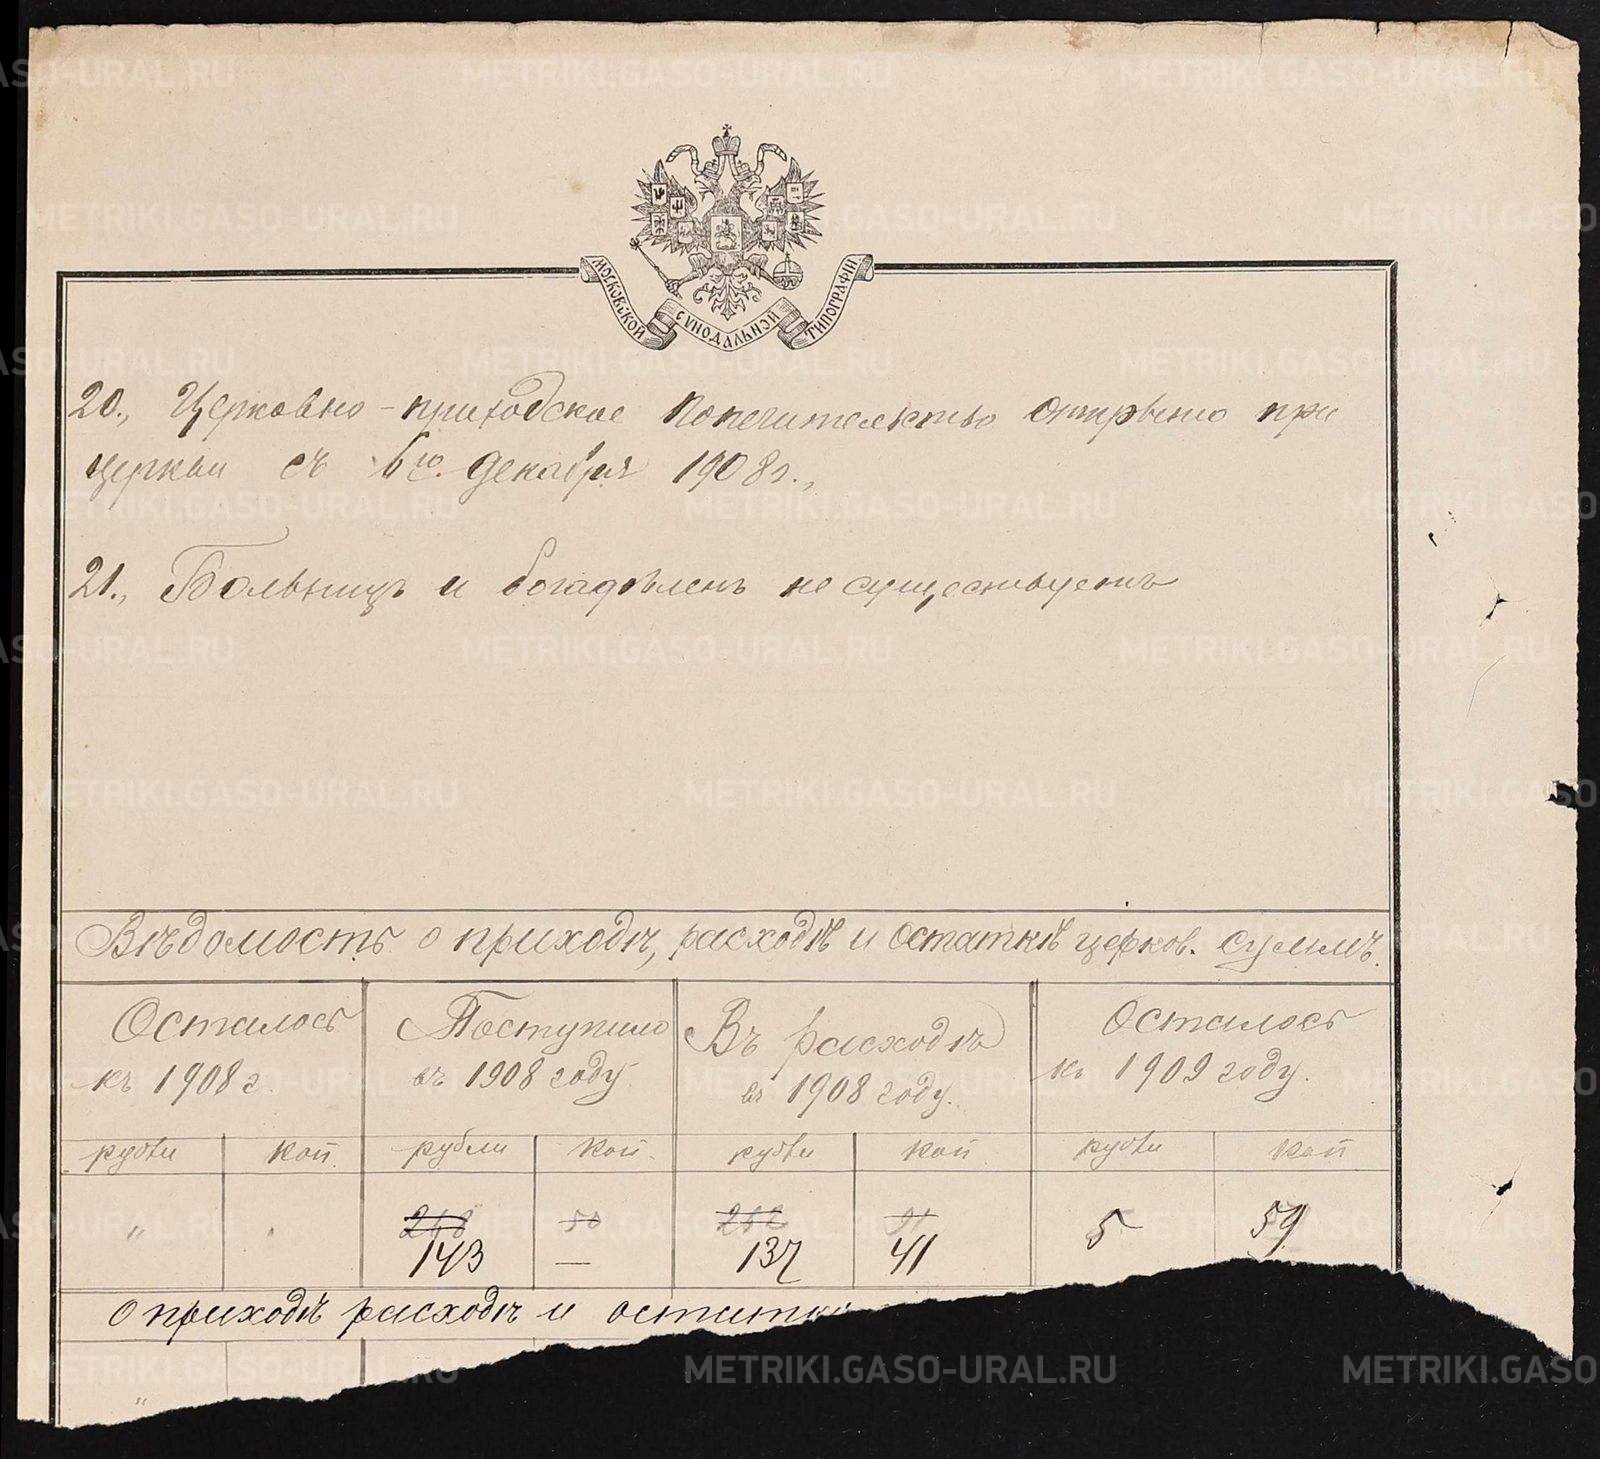 МОСКОВСКОЙ СУНОДАЛЬНОИ ТИПОГРАФІИ
20., Церковно-приходское Попечительство открыто при
церкви съ 6го. декабря 1908 г.,
21., Больницъ и богадѣленъ не существуетъ
Вѣдомость о приходѣ, расходѣ и остаткѣ церков. суммъ.
Осталось Поступило Въ расходѣ Осталось
къ 1908 г. въ 1908 году. въ 1908 году. къ 1909 году.
рубли коп. рубли коп. рубли коп. рубли коп.
" 50 5 59
143 — 137 41
о приходѣ расходѣ и остатк
"
METRIKI.GASO-URAL.RU